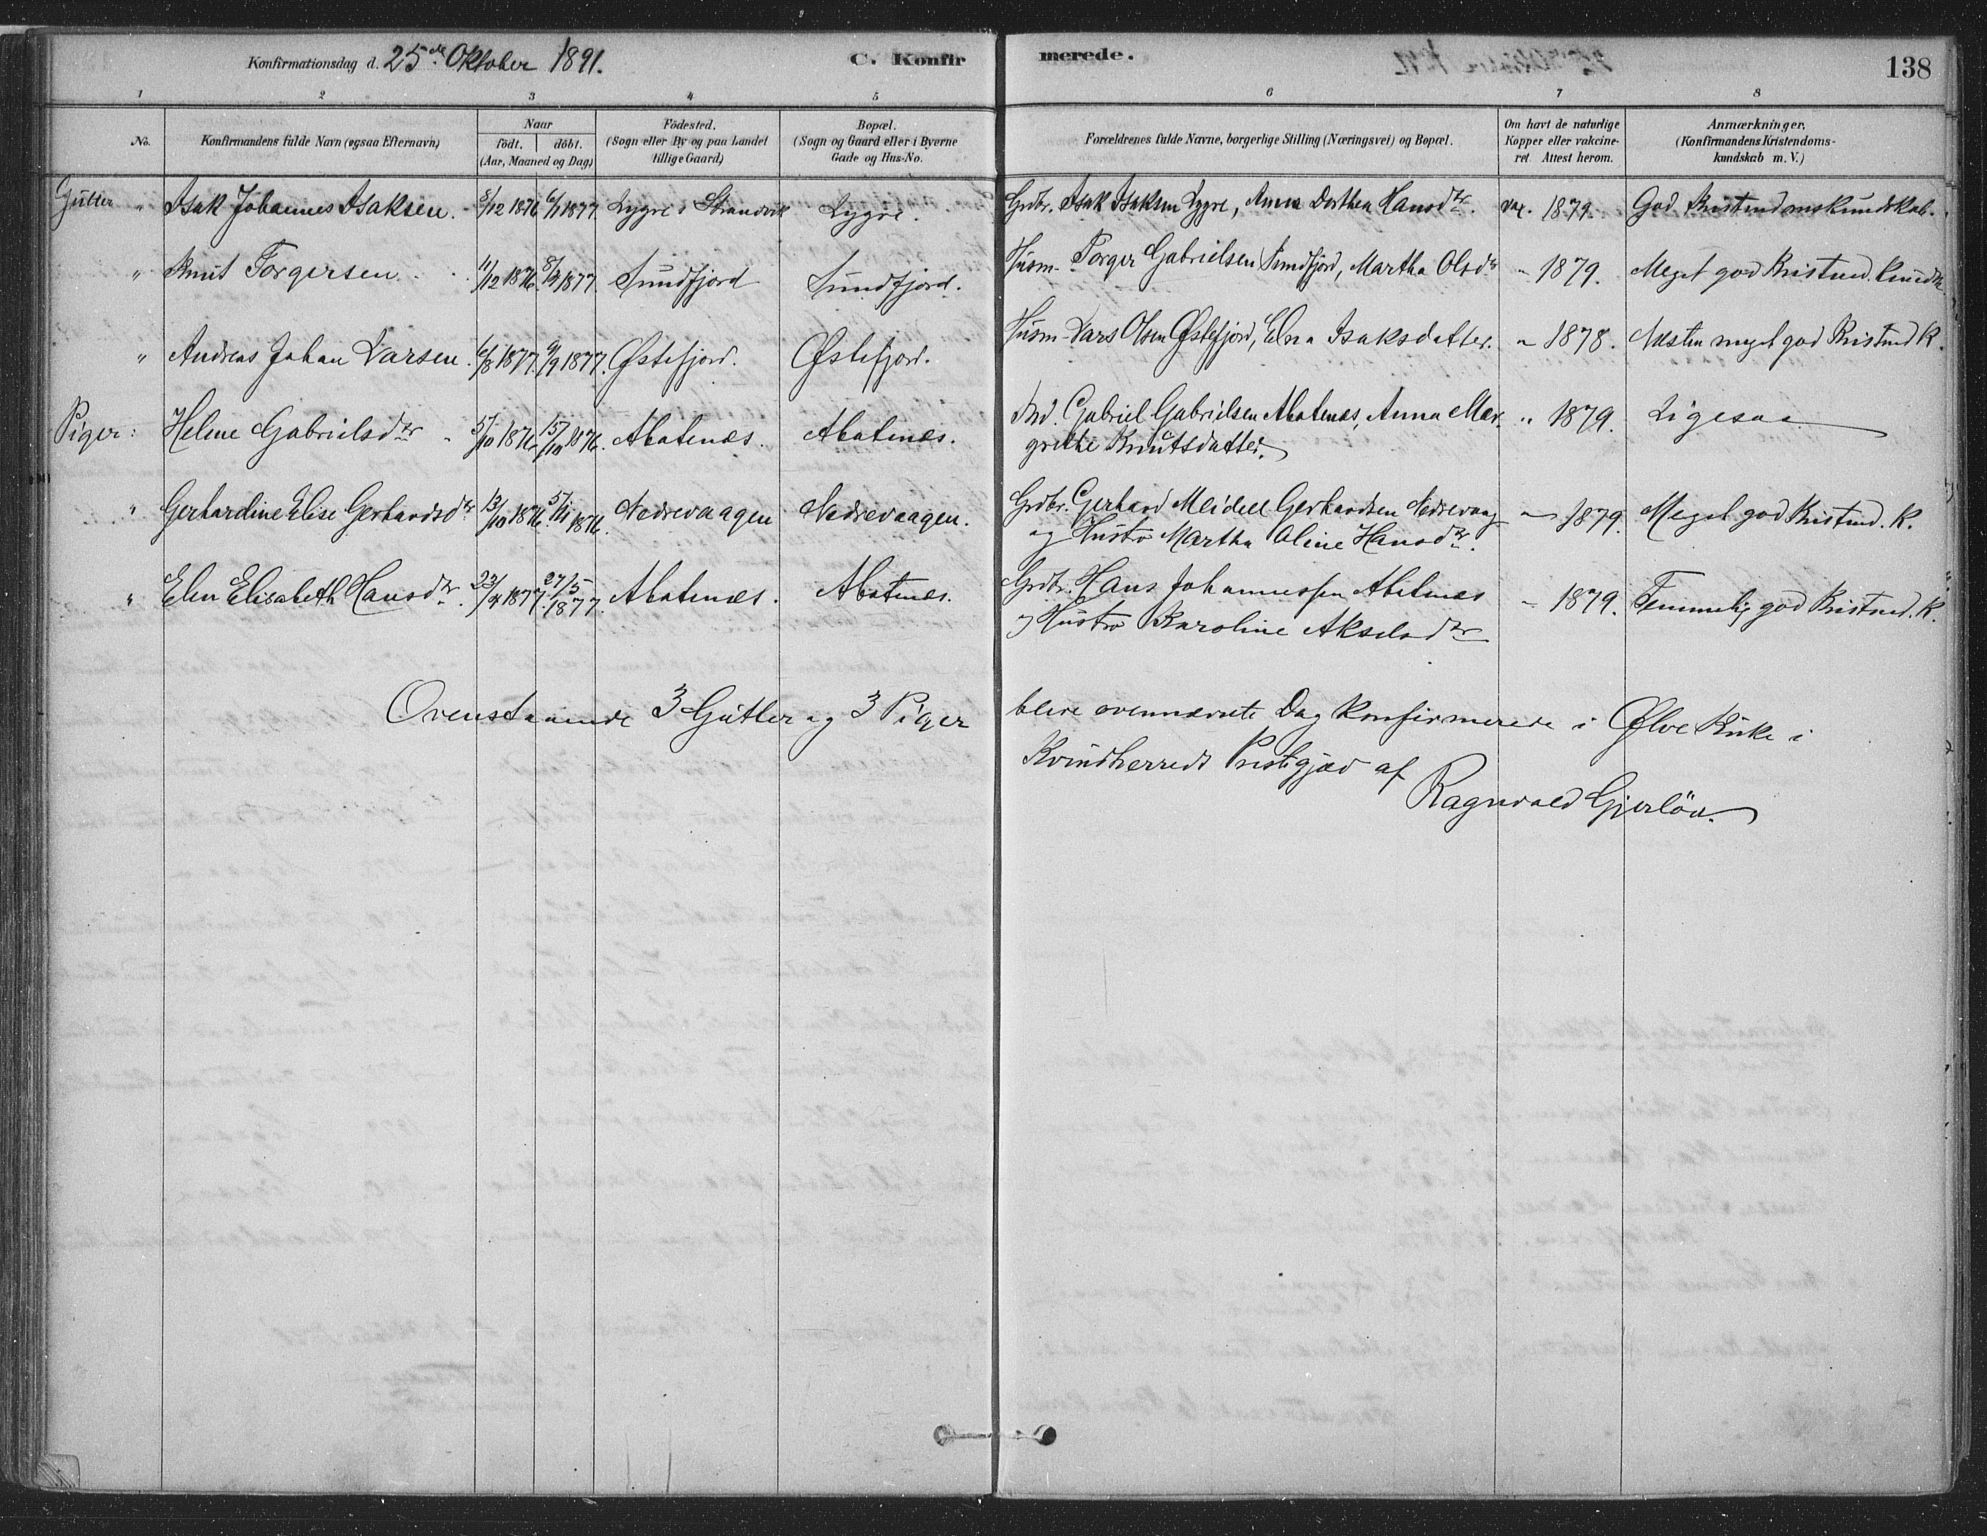 Konfirmationsdag d. 25de Oktober 1891. C. Konfir merede. 138
1 2 3 4 5 6 7 8
No. Konfirmandens fulde Navn (ogsaa Efternavn) Naar født. døbt. (Aar, Maaned og Dag) Fødested. (Sogn eller By og paa Landet tillige Gaard) Bopæl. (Sogn og Gaard eller i Byerne Gade og Hus-No. Forældrenes fulde Navne, borgerlige Stilling (Næringsvei) og Bopæl. Om havt de naturlige Kopper eller vakcineret. Attest herom. Anmærkninger. (Konfirmandens Kristendomskundskab m. V.)
Gutter " Isak Johannes Isaksen. 8/12 1876 6/1 1877. Lygre i Strandvik Lygre. Grdbr. Isak Isaksen Lygre, Anna Dorthea Hansdtr. vax. 1879. God Kristendomskundskab.
" Knut Torgersen. 11/12 1876. 8/4 1877. Sundfjord Sundfjord. Husm. Torger Gabrielsen Sundfjord, Martha Olsdr " 1879. Meget god Kristend. kundsk.
" Andreas Johan Larsen. 6/8 1877. 9/9 1877. Østefjord. Østefjord. Husm. Lars Olsen Østefjord, Elna Isaksdatter. " 1878. Næsten meget god Kristend K.
Piger: Helene Gabrielsdtr 5/10 1876. 15/10 1876. Abatenæs. Abatenæs. Ind. Gabriel Gabrielsen Abatenæs, Anna Mar- " 1879. Ligesaa
grethe Knutsdatter.
" Gerhardine Elise Gerhardsdtr 13/10 1876. 5/11 1876. Nedrevaagen Nedrevaagen. Grdbr. Gerhard Meidell Gerhardsen Nedrevaag " 1879. Meget god Kristend. K.
og Hustro Martha Oline Hansdtr.
" Elen Elisabeth Hansdtr. 23/4 1877. 27/5 1877. Abatenæs. Abatenæs. Grdbr. Hans Johannessen Abatenæs " 1879. Temmelig god Kristend. K.
og Hustro Karoline Akselsdtr
Ovenstaaende 3 Gutter og 3 Piger bleve ovennævnte Dag konfirmerede i Ølve Kirke i
Kvindherreds Prestegjæld af
Ragnvald Gjerløw.